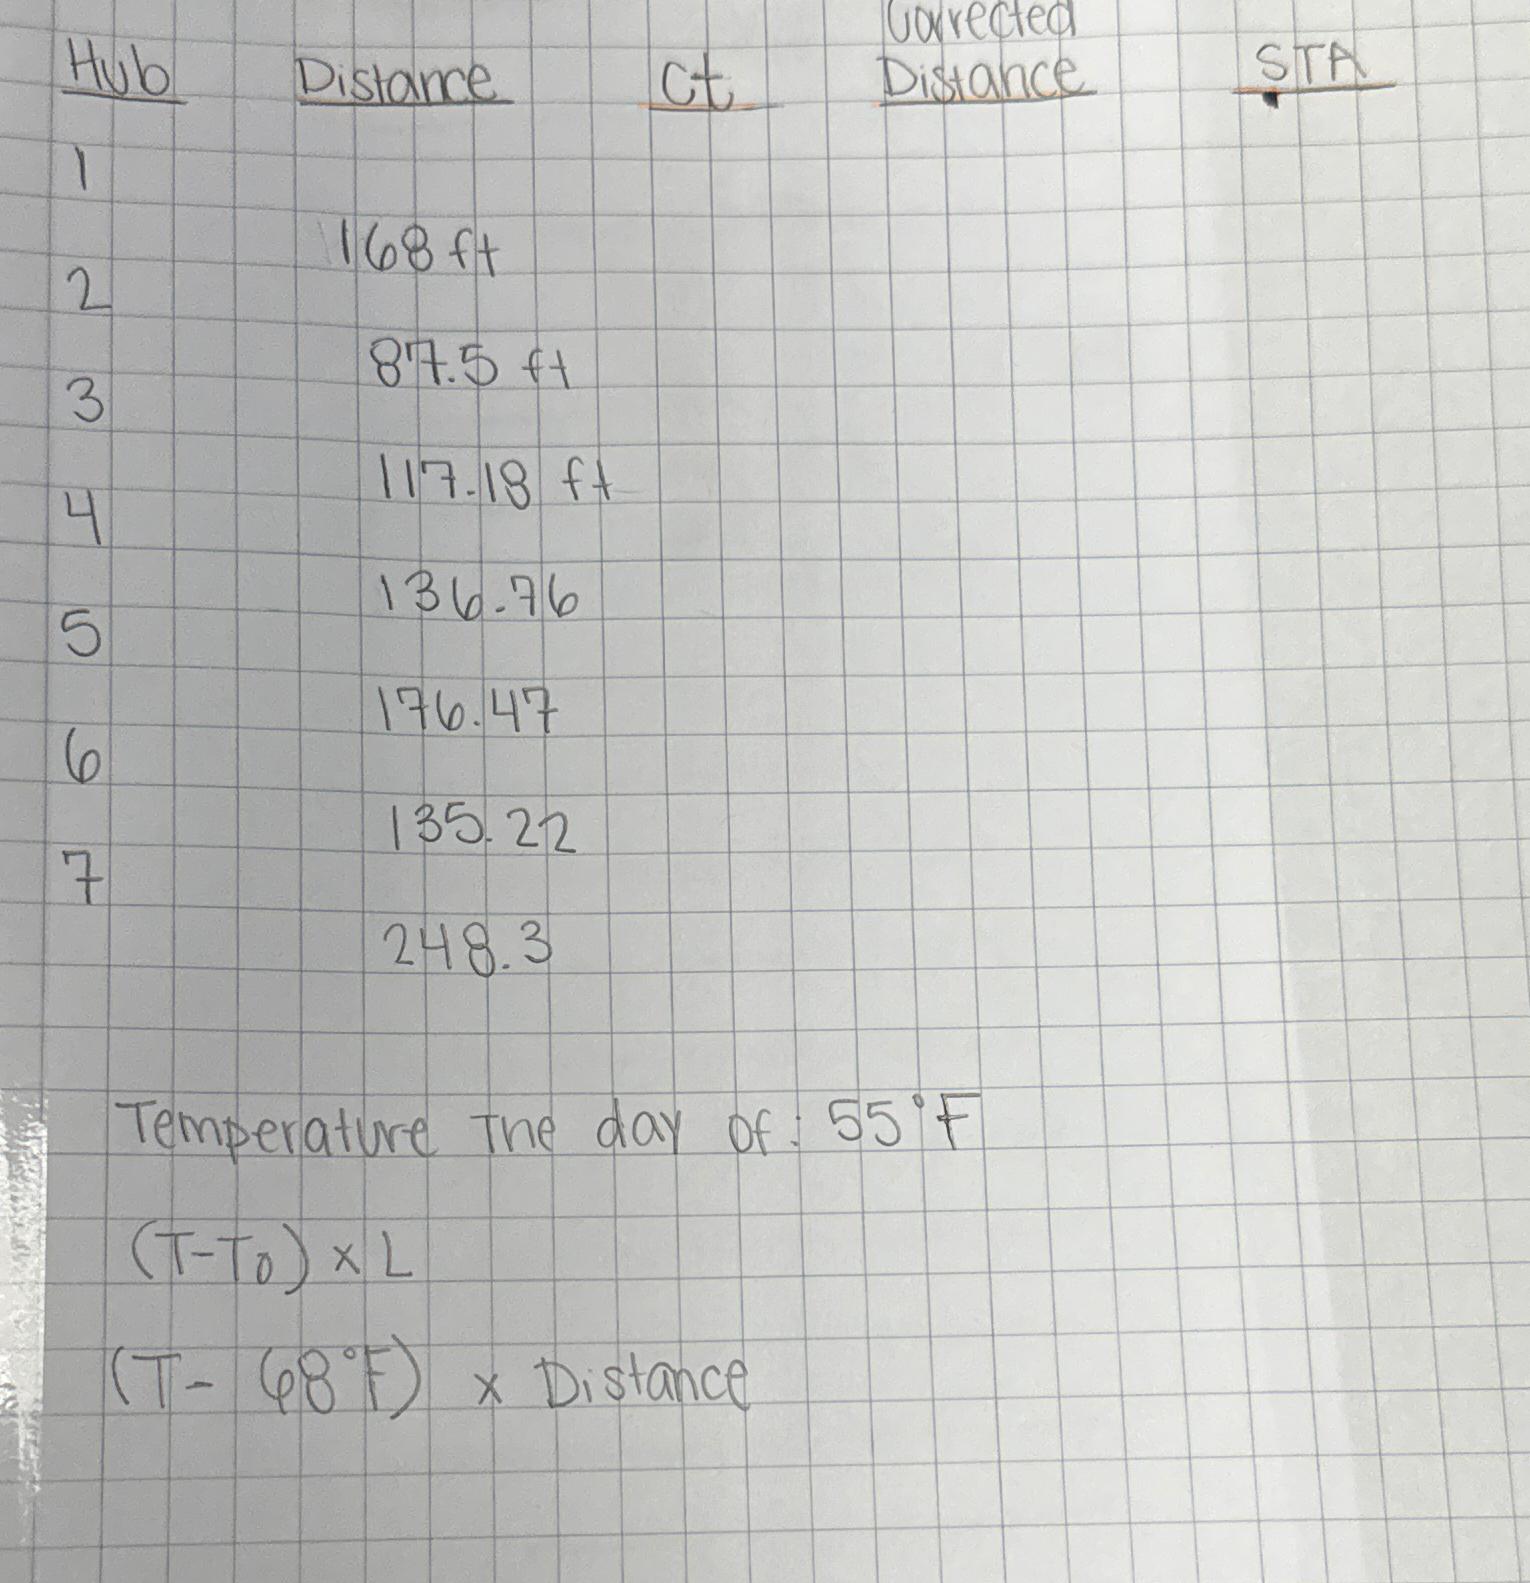 Corrected
Hub Distance Ct Distance STA
1
168 ft
2
87.5 ft
3
117.18 ft
4
136.76
5
176.47
6
135.22
7
248.3
Temperature The day of: 55°F
(T-To) x L
(T- 68°F) x Distance